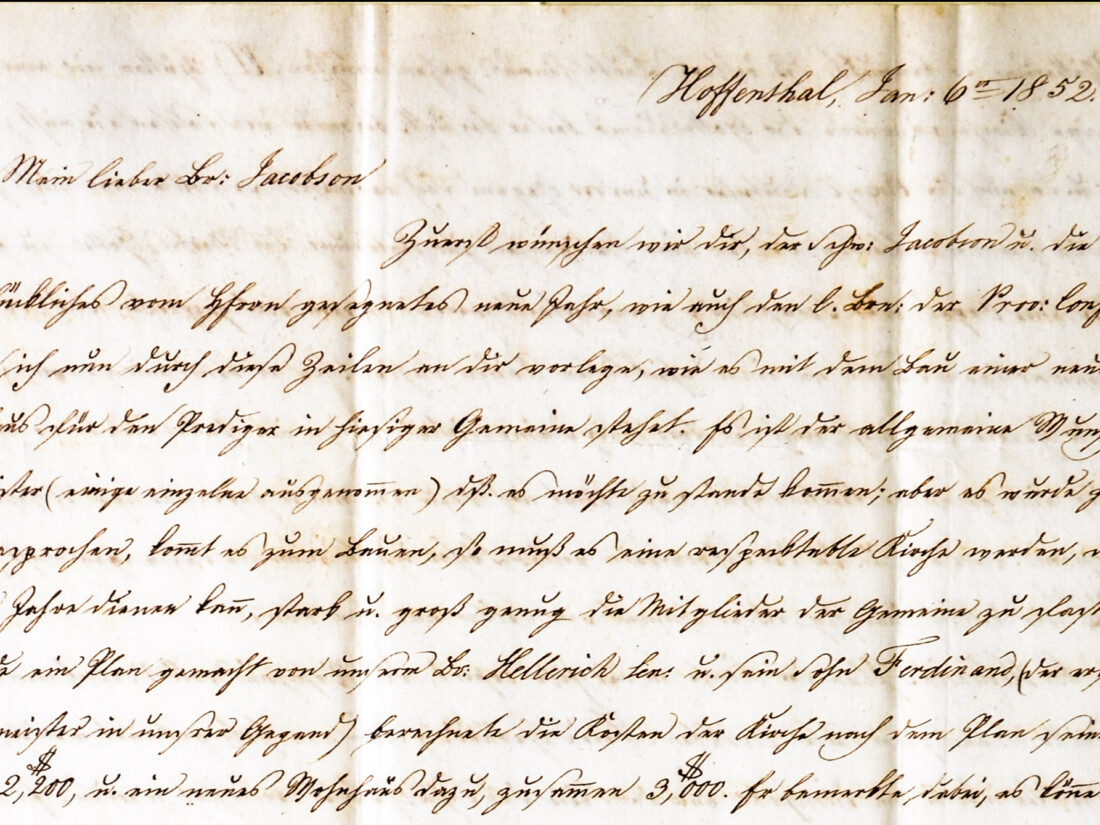 Hoffenthal, Jan: 6n 1852.
Mein lieber Br: Jacobson
Zuerst wünschen wir dir, der Schw: Jacobson u. die
ückliches vom HErrn gesegnetes neue Jahr, wie auch den l. Brn: der Prov: Conf
ich nun durch diese Zeilen an dir vorlege, wie es mit dem Bau einer neu
aus für den Prediger in hiesiger Gemeine stehet. Es ist der allgemeine Wun
ster (einige einzelne ausgenommen) dß. es möchte zu stande kommen; aber es wurde
sprochen, komt es zum Bauen, so muß es eine respecktable Kirche werden,
Jahre dienen kan̅, stark u. groß genug die Mitglieder der Gemeine zu
ein Plan gemacht von unserm Br: Hellerich Sen: u. sein Sohn Ferdinand, (der
meister in unsrer Gegend) berechnete die Kosten der Kirche nach dem Plan sein
$2,200, u. ein neues Wohnhaus dazu, zusam̅en $3,000. Er bemerkte dabei, es kön̅e